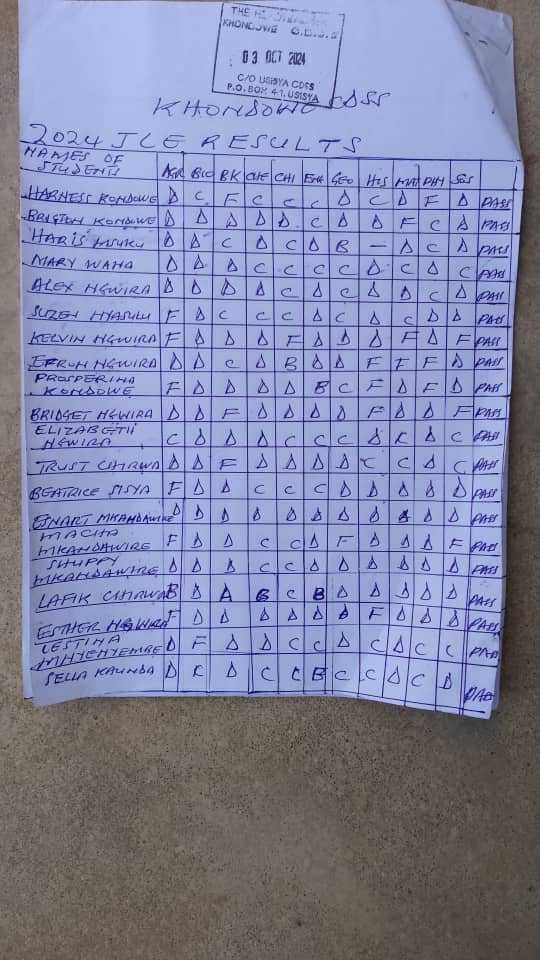 THE
KHONDOWE C.D.S.S
03 OCT 2024
C/O USISYA CDSS
P.O. BOX 41, USISYA
KHONDOWE CDSS
2024 JCE RESULTS
NAMES OF STUDENTS AGR BIO BK CHE CHI ENG GEO HIS MAT PHY SOS
HARNESS KONDOWE D C F C C C D C D F D PASS
BRIGTON KONDOWE D D D D D C D D F C D PASS
HARIS MSUKU D D C D C D B - D C D PASS
MARY WAHA D D D C C C C D C D C PASS
ALEX NGWIRA D D D D C D C D D C D PASS
SUZEN NYASULU F D C C C D C D C D D PASS
KELVIN NGWIRA F D D D F D D D F D F PASS
EFRON NGWIRA D D C D B D D F F F D PASS
PROSPERINA KONDOWE F D D D D B C F D F D PASS
BRIDGET NGWIRA D D F D D D D F D D F PASS
ELIZABETH NGWIRA C D D D C C C D C D C PASS
TRUST CHIRWA D D F D D D D C C D C PASS
BEATRICE SISYA F D D C C C D D D D D PASS
ESNART MKANDAWIRE D D D D D D D D D D D PASS
MACHA MKANDAWIRE F D D C C D F D D D F PASS
SHUPPY MKANDAWIRE D D D C C D D D D D D PASS
LAFIK CHIRWA B D A B C B D D D D D PASS
ESTHER NGWIRA F D D D D D D F D D D PASS
LESTINA MNYENYEMBE D F D D C C D C D C C PASS
SELLA KAUNDA D C D C C B C C D C D PASS